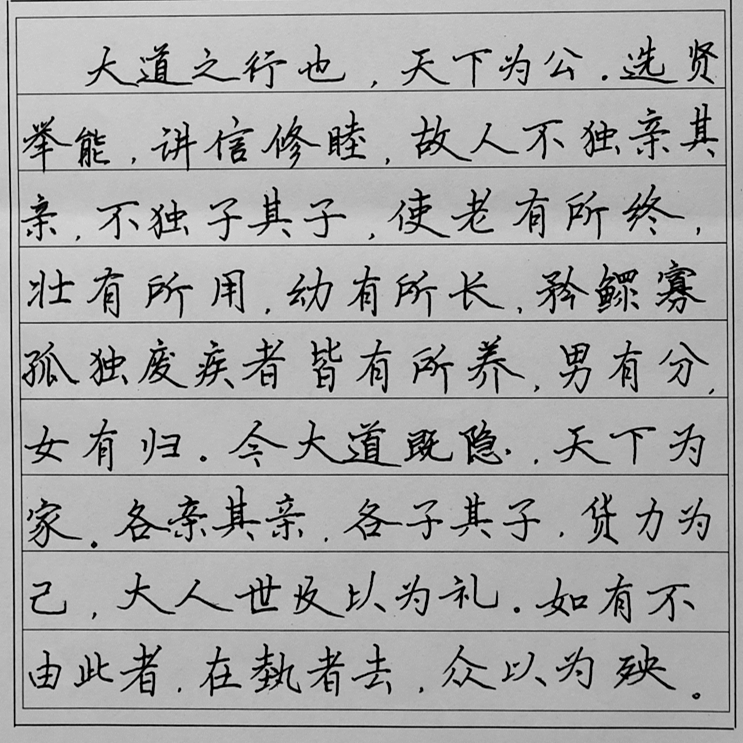 大道之行也，天下为公．选贤
举能，讲信修睦，故人不独亲其
亲，不独子其子，使老有所终，
壮有所用，幼有所长，矜鳏寡
孤独废疾者皆有所养，男有分，
女有归．今大道既隐，天下为
家．各亲其亲，各子其子，货力为
己，大人世及以为礼．如有不
由此者，在埶者去，众以为殃。